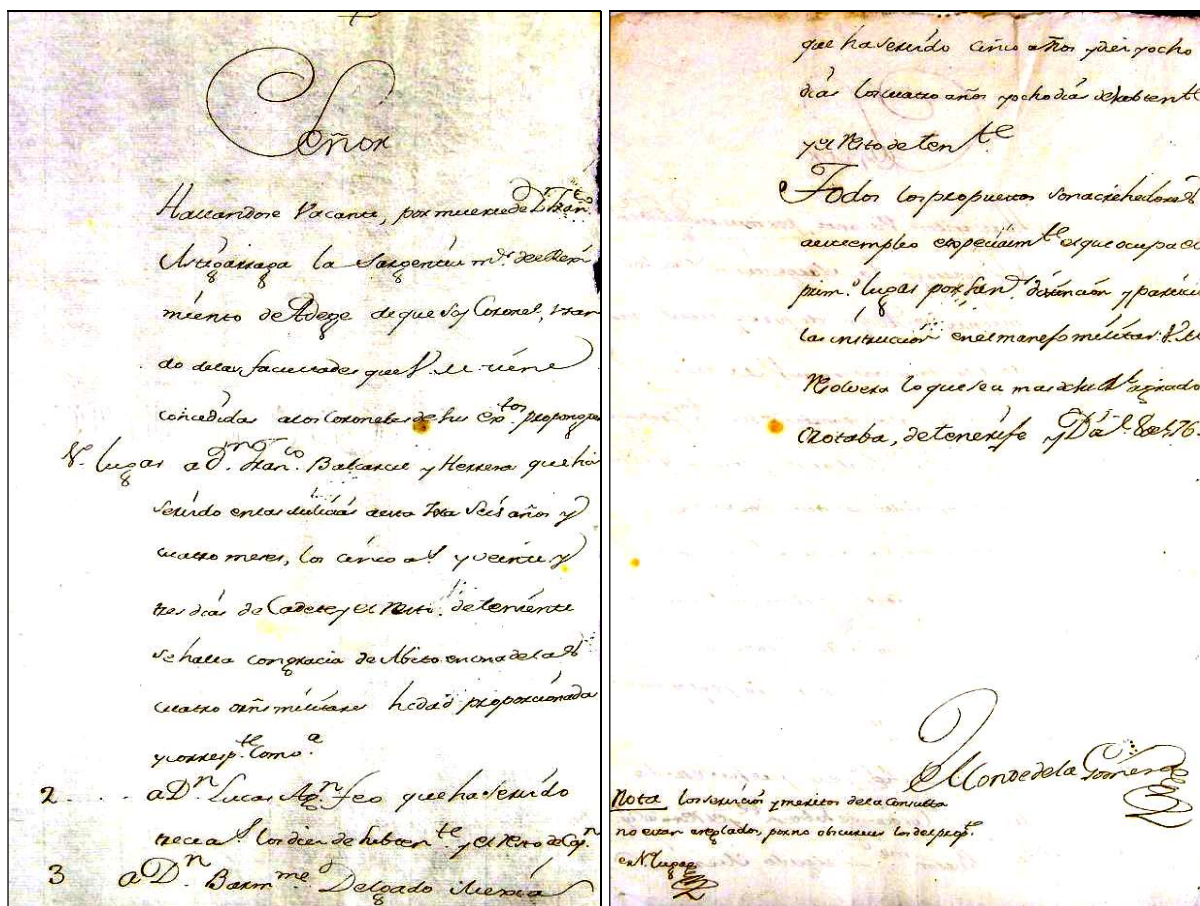 Señor
Hallandose Vacante, por muerte de Dn Fran.co
Astigarraga la Sargentia m.r de el Rexi
miento de Adege de que soy Coronel, Usan
do de las facultades que V. M. tiene
concedidas a los Coroneles de sus ex.tos propongo
lugar a D. Fran.co Balcarcel y Herrera que ha
servido en las Milicias de esta Ysla Seis años y
cuatro meses, los cinco a.s y veinte y
tres dias de Cadete y el Resto de teniente
se halla con gracia de Abito en una de las
cuatro ordns militares hedad proporcionada
y corresp.te Como.a
2 . . . a Dn. Lucas Ag.n Feo que ha Servido
trece a.s los diez de subten.te y el Resto de Cap.n
3 a Dn. Barm.me Delgado Mexia
que ha servido cinco años y diez y ocho
dias los cuatro años y ocho dias de subten.te
y el Resto de ten.te
Todos los propuestos son acrehedores
a este empleo expeciaim.te el que ocupa el
prim.o lugar por su distincion y particu
lar instruccion en el manejo militar. V. M.
Resolvera lo que sea mas de su agrado
Orotaba, de tenerife y
El Conde de la Gomera
Nota Los servicios y meritos de la Consulta
no estan areglados, por no obscurecer los del prop.to
en 1.r lugar